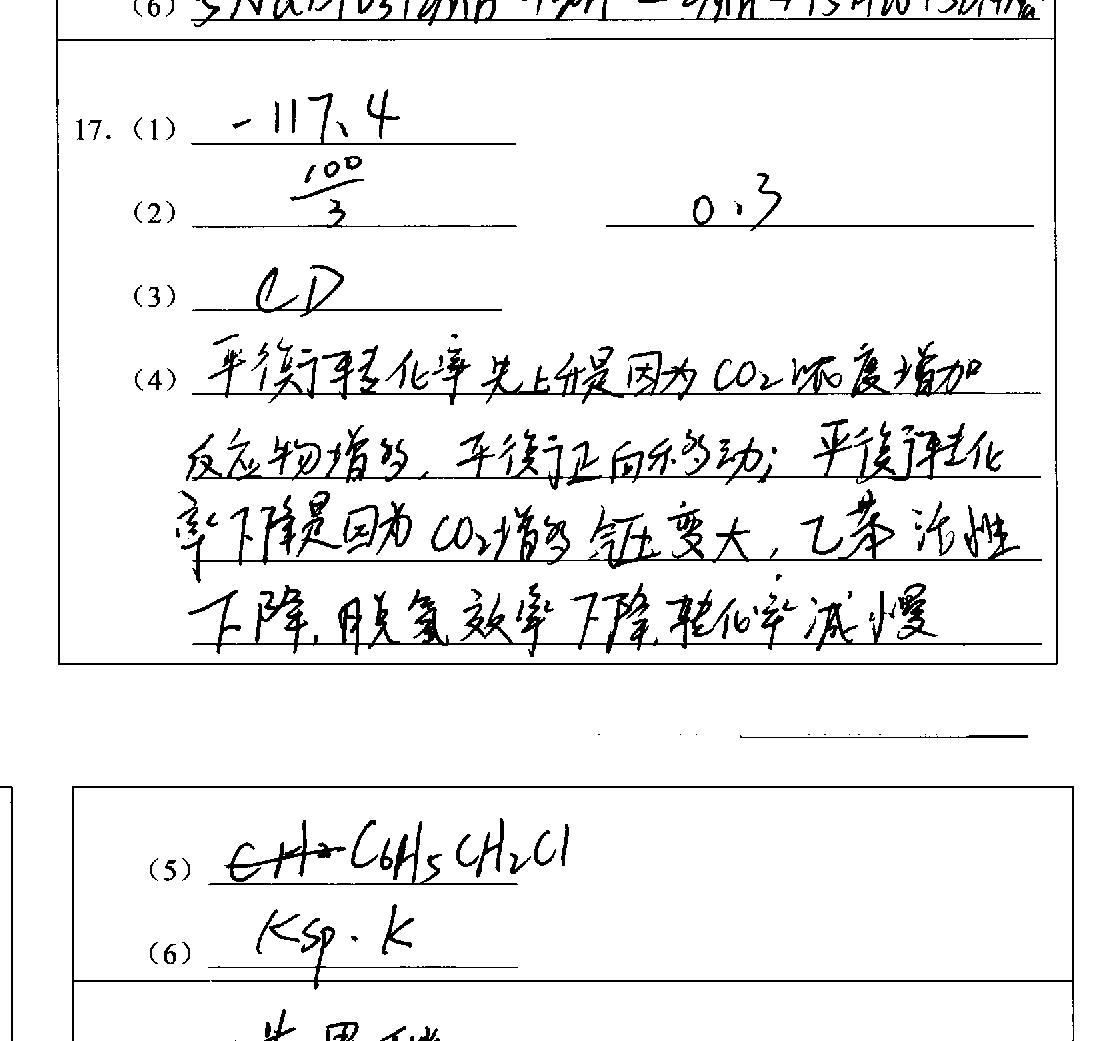 (6)
17. (1) -117.4
(2) 100/3 0.3
(3) CD
(4) 平衡转化率先上升是因为CO₂浓度增加
反应物增多,平衡正向移动;平衡转化
率下降是因为CO₂增多气压变大,乙苯活性
下降,脱氢效率下降,转化率减慢
(5) C₆H₅CH₂Cl
(6) Ksp·K